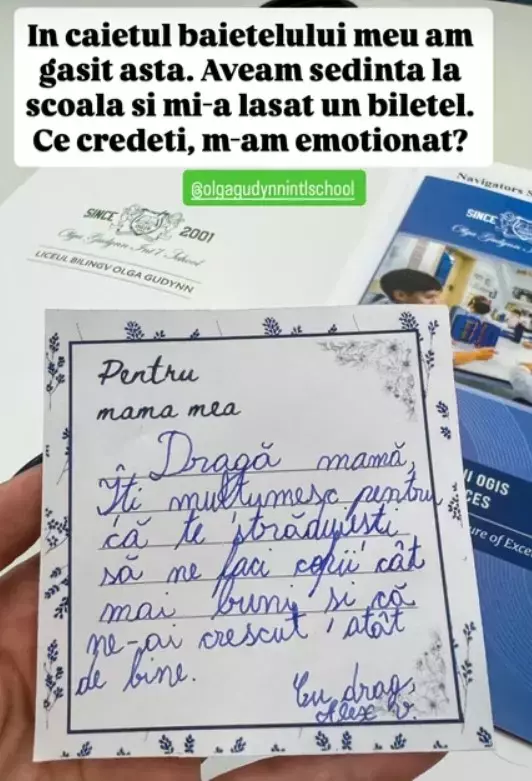 In caietul baietelului meu am
gasit asta. Aveam sedinta la
scoala si mi-a lasat un biletel.
Ce credeti, m-am emotionat?
@olgagudynnintlschool
Navigators
SINCE 2001
Olga Gudynn Int'l School
LICEUL BILINGV OLGA GUDYNN
SINCE
Pentru
mama mea
Dragă mamă,
Îți mulțumesc pentru
că te străduiești
să ne faci copii cât
mai buni și că
ne-ai crescut atât
de bine.
Cu drag,
Alex V.
OGIS